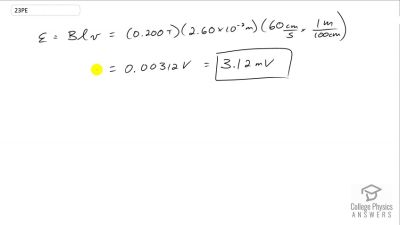 23PE
ε = Blv = (0.200 T)(2.60×10⁻²m)(60 cm/s × 1m/100cm)
= 0.00312 V = 3.12 mV
College Physics
ANSWERS